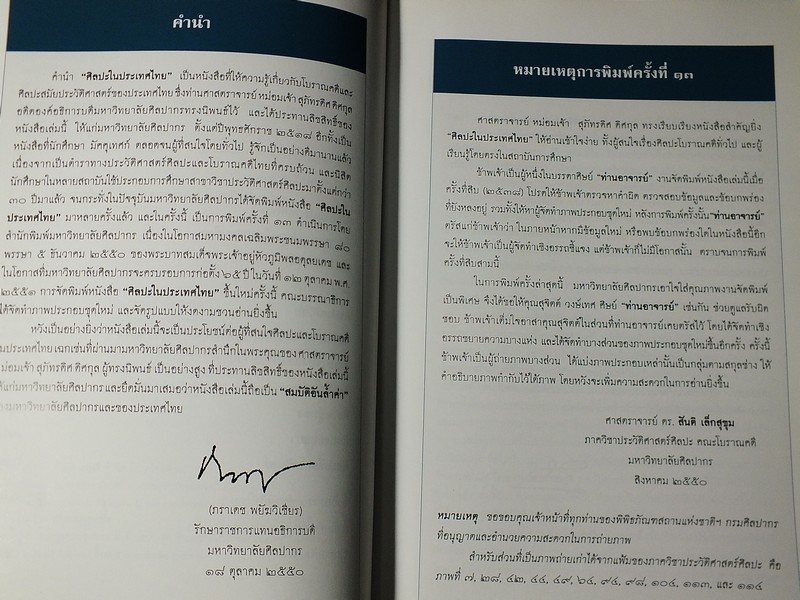 คำนำ
คำนำ “ศิลปะในประเทศไทย” เป็นหนังสือที่ให้ความรู้เกี่ยวกับโบราณคดีและ
ศิลปะสมัยประวัติศาสตร์ของประเทศไทย ซึ่งท่านศาสตราจารย์ หม่อมเจ้า สุภัทรดิศ ดิศกุล
อดีตองค์อธิการบดีมหาวิทยาลัยศิลปากรทรงนิพนธ์ไว้ และได้ประทานลิขสิทธิ์ของ
หนังสือเล่มนี้ ให้แก่มหาวิทยาลัยศิลปากร ตั้งแต่ปีพุทธศักราช ๒๕๑๘ อีกทั้งเป็น
หนังสือที่นักศึกษา มัคคุเทศก์ ตลอดจนผู้ที่สนใจโดยทั่วไป รู้จักเป็นอย่างดีมานานแล้ว
เนื่องจากเป็นตำราทางประวัติศาสตร์ศิลปะและโบราณคดีไทยที่ครบถ้วน และนิสิต
นักศึกษาในหลายสถาบันใช้ประกอบการศึกษาสาขาวิชาประวัติศาสตร์ศิลปะมาตั้งแต่กว่า
๓๐ ปีมาแล้ว จนกระทั่งในปัจจุบันมหาวิทยาลัยศิลปากรได้จัดพิมพ์หนังสือ “ศิลปะใน
ประเทศไทย” มาหลายครั้งแล้ว และในครั้งนี้ เป็นการพิมพ์ครั้งที่ ๑๓ ดำเนินการโดย
สำนักพิมพ์มหาวิทยาลัยศิลปากร เนื่องในโอกาสมหามงคลเฉลิมพระชนมพรรษา ๘๐
พรรษา ๕ ธันวาคม ๒๕๕๐ ของพระบาทสมเด็จพระเจ้าอยู่หัวภูมิพลอดุลยเดช และ
ในโอกาสที่มหาวิทยาลัยศิลปากรจะครบรอบการก่อตั้ง ๖๕ ปี ในวันที่ ๑๒ ตุลาคม พ.ศ.
๒๕๕๑ การจัดพิมพ์หนังสือ “ศิลปะในประเทศไทย” ขึ้นใหม่ครั้งนี้ คณะบรรณาธิการ
ได้จัดทำภาพประกอบชุดใหม่ และจัดรูปแบบให้งดงามชวนอ่านยิ่งขึ้น
หวังเป็นอย่างยิ่งว่าหนังสือเล่มนี้จะเป็นประโยชน์ต่อผู้ที่สนใจศิลปะและโบราณคดี
ในประเทศไทยเฉกเช่นที่ผ่านมามหาวิทยาลัยศิลปากรสำนึกในพระคุณของ ศาสตราจารย์
หม่อมเจ้า สุภัทรดิศ ดิศกุล ผู้ทรงนิพนธ์ เป็นอย่างสูง ที่ประทานลิขสิทธิ์ของหนังสือเล่มนี้
ให้แก่มหาวิทยาลัยศิลปากรและยึดมั่นมาเสมอว่าหนังสือเล่มนี้ถือเป็น “สมบัติอันล้ำค่า”
ของมหาวิทยาลัยศิลปากรและของประเทศไทย
(ภราเดช พยัฆวิเชียร)
รักษาราชการแทนอธิการบดี
มหาวิทยาลัยศิลปากร
๑๘ ตุลาคม ๒๕๕๐
หมายเหตุการพิมพ์ครั้งที่ ๑๓
ศาสตราจารย์ หม่อมเจ้า สุภัทรดิศ ดิศกุล ทรงเรียบเรียงหนังสือสำคัญยิ่ง
“ศิลปะในประเทศไทย” ให้อ่านเข้าใจง่าย ทั้งผู้สนใจเรื่องศิลปะโบราณคดีทั่วไป และผู้
เรียนรู้โดยตรงในสถาบันการศึกษา
ข้าพเจ้าเป็นผู้หนึ่งในบรรดาศิษย์ “ท่านอาจารย์” งานจัดพิมพ์หนังสือเล่มนี้เมื่อ
ครั้งที่สิบ (๒๕๓๘) โปรดให้ข้าพเจ้าตรวจหาคำผิด ตรวจสอบข้อมูลและข้อบกพร่อง
ที่ยังหลงอยู่ รวมทั้งให้หาผู้จัดทำภาพประกอบชุดใหม่ หลังการพิมพ์ครั้งนั้น“ท่านอาจารย์”
ตรัสแก่ข้าพเจ้าว่า ในภายหน้าหากมีข้อมูลใหม่ หรือพบข้อบกพร่องใดในหนังสือนี้อีก
จะให้ข้าพเจ้าเป็นผู้จัดทำเชิงอรรถชี้แจง แต่ข้าพเจ้าก็ไม่มีโอกาสนั้น ตราบจนการพิมพ์
ครั้งที่สิบสามนี้
ในการพิมพ์ครั้งล่าสุดนี้ มหาวิทยาลัยศิลปากรเอาใจใส่คุณภาพงานจัดพิมพ์
เป็นพิเศษ จึงได้ขอให้คุณสุจิตต์ วงษ์เทศ ศิษย์ “ท่านอาจารย์” เช่นกัน ช่วยดูแลรับผิด
ชอบ ข้าพเจ้าเต็มใจอาสาคุณสุจิตต์ในส่วนที่ท่านอาจารย์เคยตรัสไว้ โดยได้จัดทำเชิง
อรรถขยายความบางแห่ง และจัดทำบางส่วนของภาพประกอบชุดใหม่ขึ้นอีกครั้ง ครั้งนี้
ข้าพเจ้าเป็นผู้ถ่ายภาพบางส่วน ได้แบ่งภาพประกอบเหล่านั้นเป็นกลุ่มตามสกุลช่าง ให้
คำอธิบายภาพกำกับไว้ใต้ภาพ โดยหวังจะเพิ่มความสะดวกในการอ่านยิ่งขึ้น
ศาสตราจารย์ ดร. สันติ เล็กสุขุม
ภาควิชาประวัติศาสตร์ศิลปะ คณะโบราณคดี
มหาวิทยาลัยศิลปากร
สิงหาคม ๒๕๕๐
หมายเหตุ ขอขอบคุณเจ้าหน้าที่ทุกท่านของพิพิธภัณฑสถานแห่งชาติฯ กรมศิลปากร
ที่อนุญาตและอำนวยความสะดวกในการถ่ายภาพ
สำหรับส่วนที่เป็นภาพถ่ายเก่าได้จากแฟ้มของภาควิชาประวัติศาสตร์ศิลปะ คือ
ภาพที่ ๗, ๒๘, ๔๒, ๔๔, ๔๙, ๖๔, ๙๔, ๙๘, ๑๐๔, ๑๑๓, และ ๑๑๔